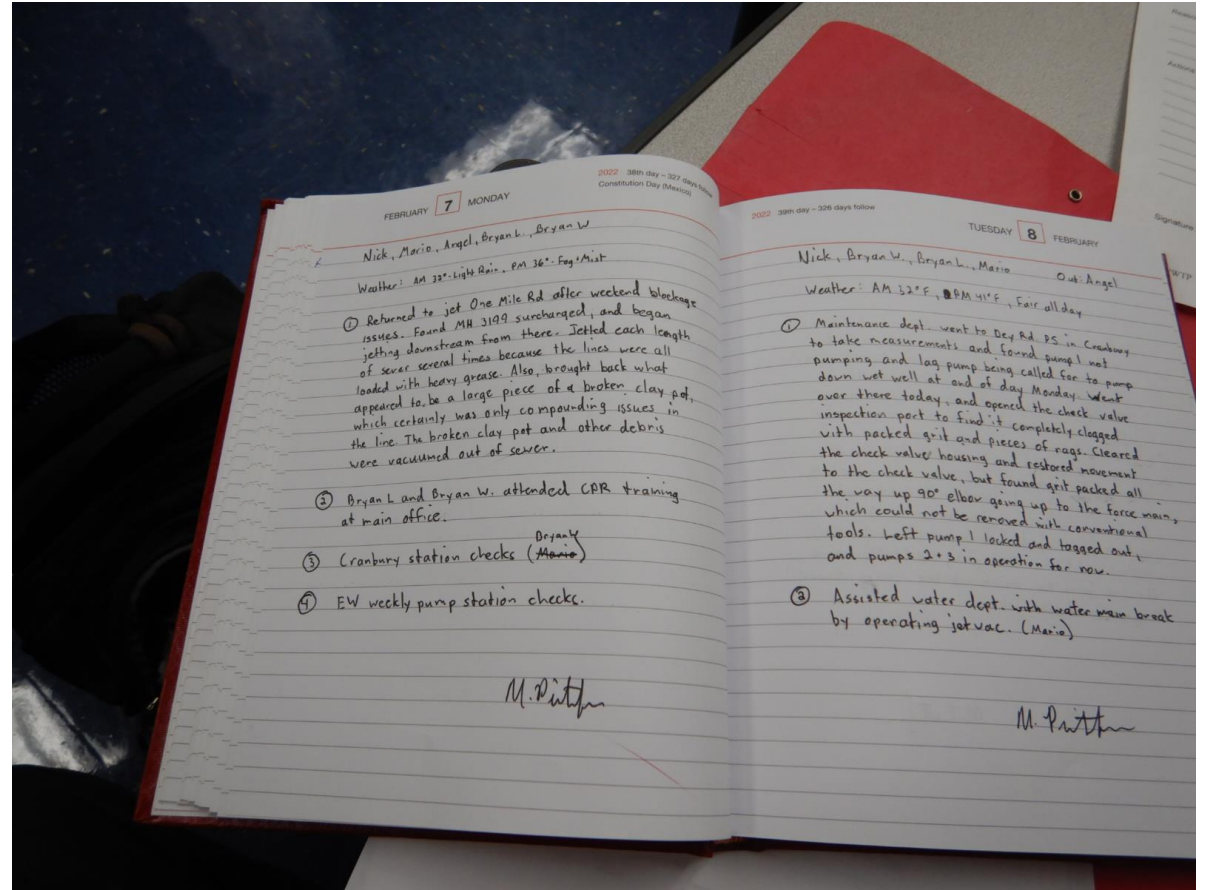 FEBRUARY 7 MONDAY
2022 38th day – 327 days follow
Constitution Day (Mexico)
Nick, Mario, Angel, Bryan L., Bryan W
Weather: AM 33°-Light Rain, PM 36°-Fog+Mist
① Returned to jet One Mile Rd after weekend blockage
issues. Found MH 3199 surcharged, and began
jetting downstream from there. Jetted each length
of sewer several times because the lines were all
loaded with heavy grease. Also, brought back what
appeared to be a large piece of a broken clay pot,
which certainly was only compounding issues in
the line. The broken clay pot and other debris
were vacuumed out of sewer.
② Bryan L and Bryan W. attended CPR training
at main office.
Bryan
③ Cranbury station checks (Mario)
④ EW weekly pump station checks.
2022 39th day – 326 days follow
TUESDAY 8 FEBRUARY
Nick, Bryan W., Bryan L., Mario Out: Angel
Weather: AM 32°F, PM 41°F, Fair all day
① Maintenance dept. went to Dey Rd. PS in Cranbury
to take measurements and found pump 1 not
pumping and lag pump being called for to pump
down wet well at end of day Monday. Went
over there today, and opened the check valve
inspection port to find it completely clogged
with packed grit and pieces of rags. Cleared
the check valve housing and restored movement
to the check valve, but found grit packed all
the way up 90° elbow going up to the force main,
which could not be removed with conventional
tools. Left pump 1 locked and tagged out,
and pumps 2+3 in operation for now.
② Assisted water dept. with water main break
by operating jetvac. (Mario)
Signature